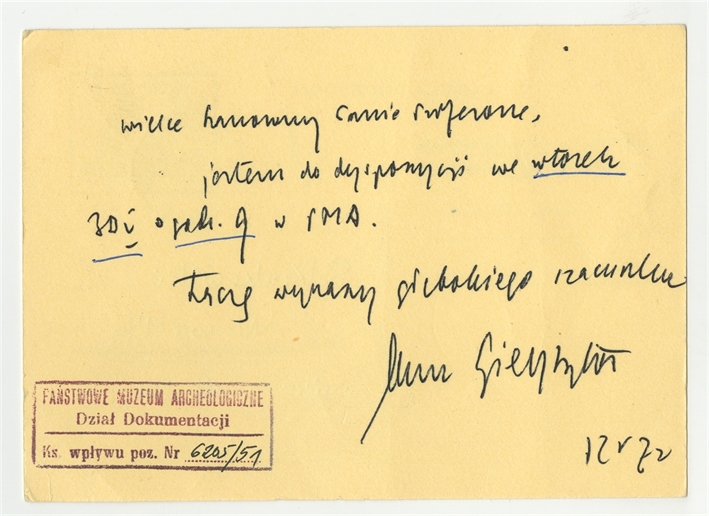 wielce szanowny Panie Profesorze,
jestem do dyspozycji we wtorek
30 V o godz. 9 w PMA.
Łączę wyrazy głębokiego szacunku
Gieysztor
12 V 72
PAŃSTWOWE MUZEUM ARCHEOLOGICZNE
Dział Dokumentacji
Ks. wpływu poz. Nr 6205/51